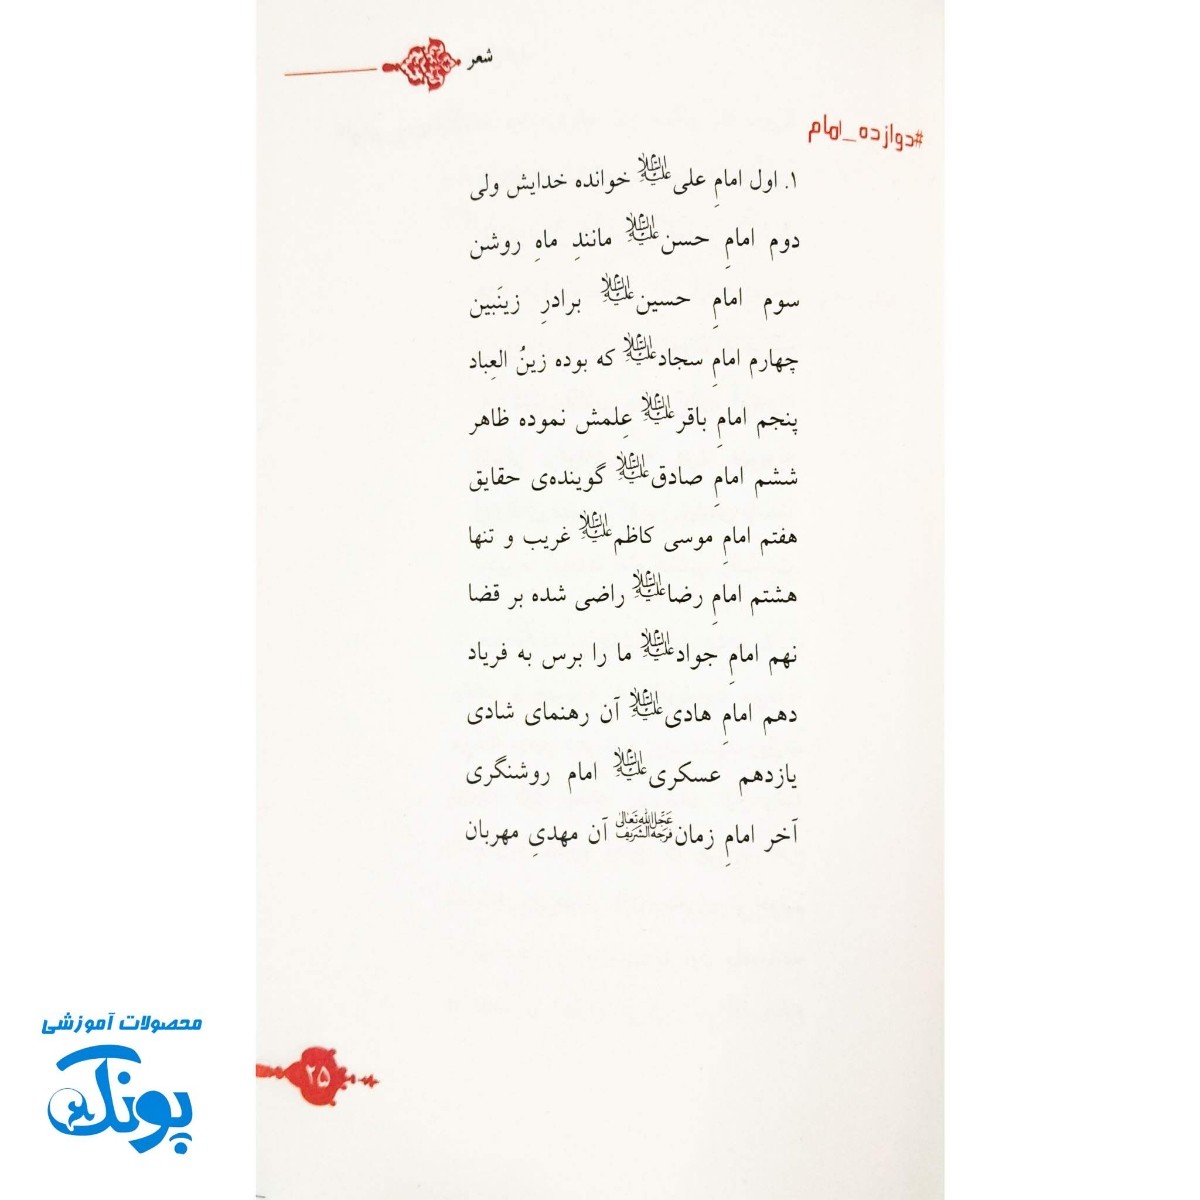 شعر
#دوازده_امام
۱. اول امامِ علی علیه‌السلام خوانده خدایش ولی
دوم امامِ حسن علیه‌السلام مانندِ ماهِ روشن
سوم امامِ حسین علیه‌السلام برادرِ زینَبین
چهارم امامِ سجاد علیه‌السلام که بوده زینُ العِباد
پنجم امامِ باقر علیه‌السلام عِلمش نموده ظاهر
ششم امامِ صادق علیه‌السلام گوینده‌ی حقایق
هفتم امامِ موسی کاظم علیه‌السلام غریب و تنها
هشتم امامِ رضا علیه‌السلام راضی شده بر قضا
نهم امامِ جواد علیه‌السلام ما را برس به فریاد
دهم امامِ هادی علیه‌السلام آن رهنمای شادی
یازدهم عسکری علیه‌السلام امام روشنگری
آخر امامِ زمان عَجَّلَ‌اللهُ‌تَعالی‌فَرَجَهُ‌الشَّریف آن مهدیِ مهربان
۲۵
محصولات آموزشی
پونک